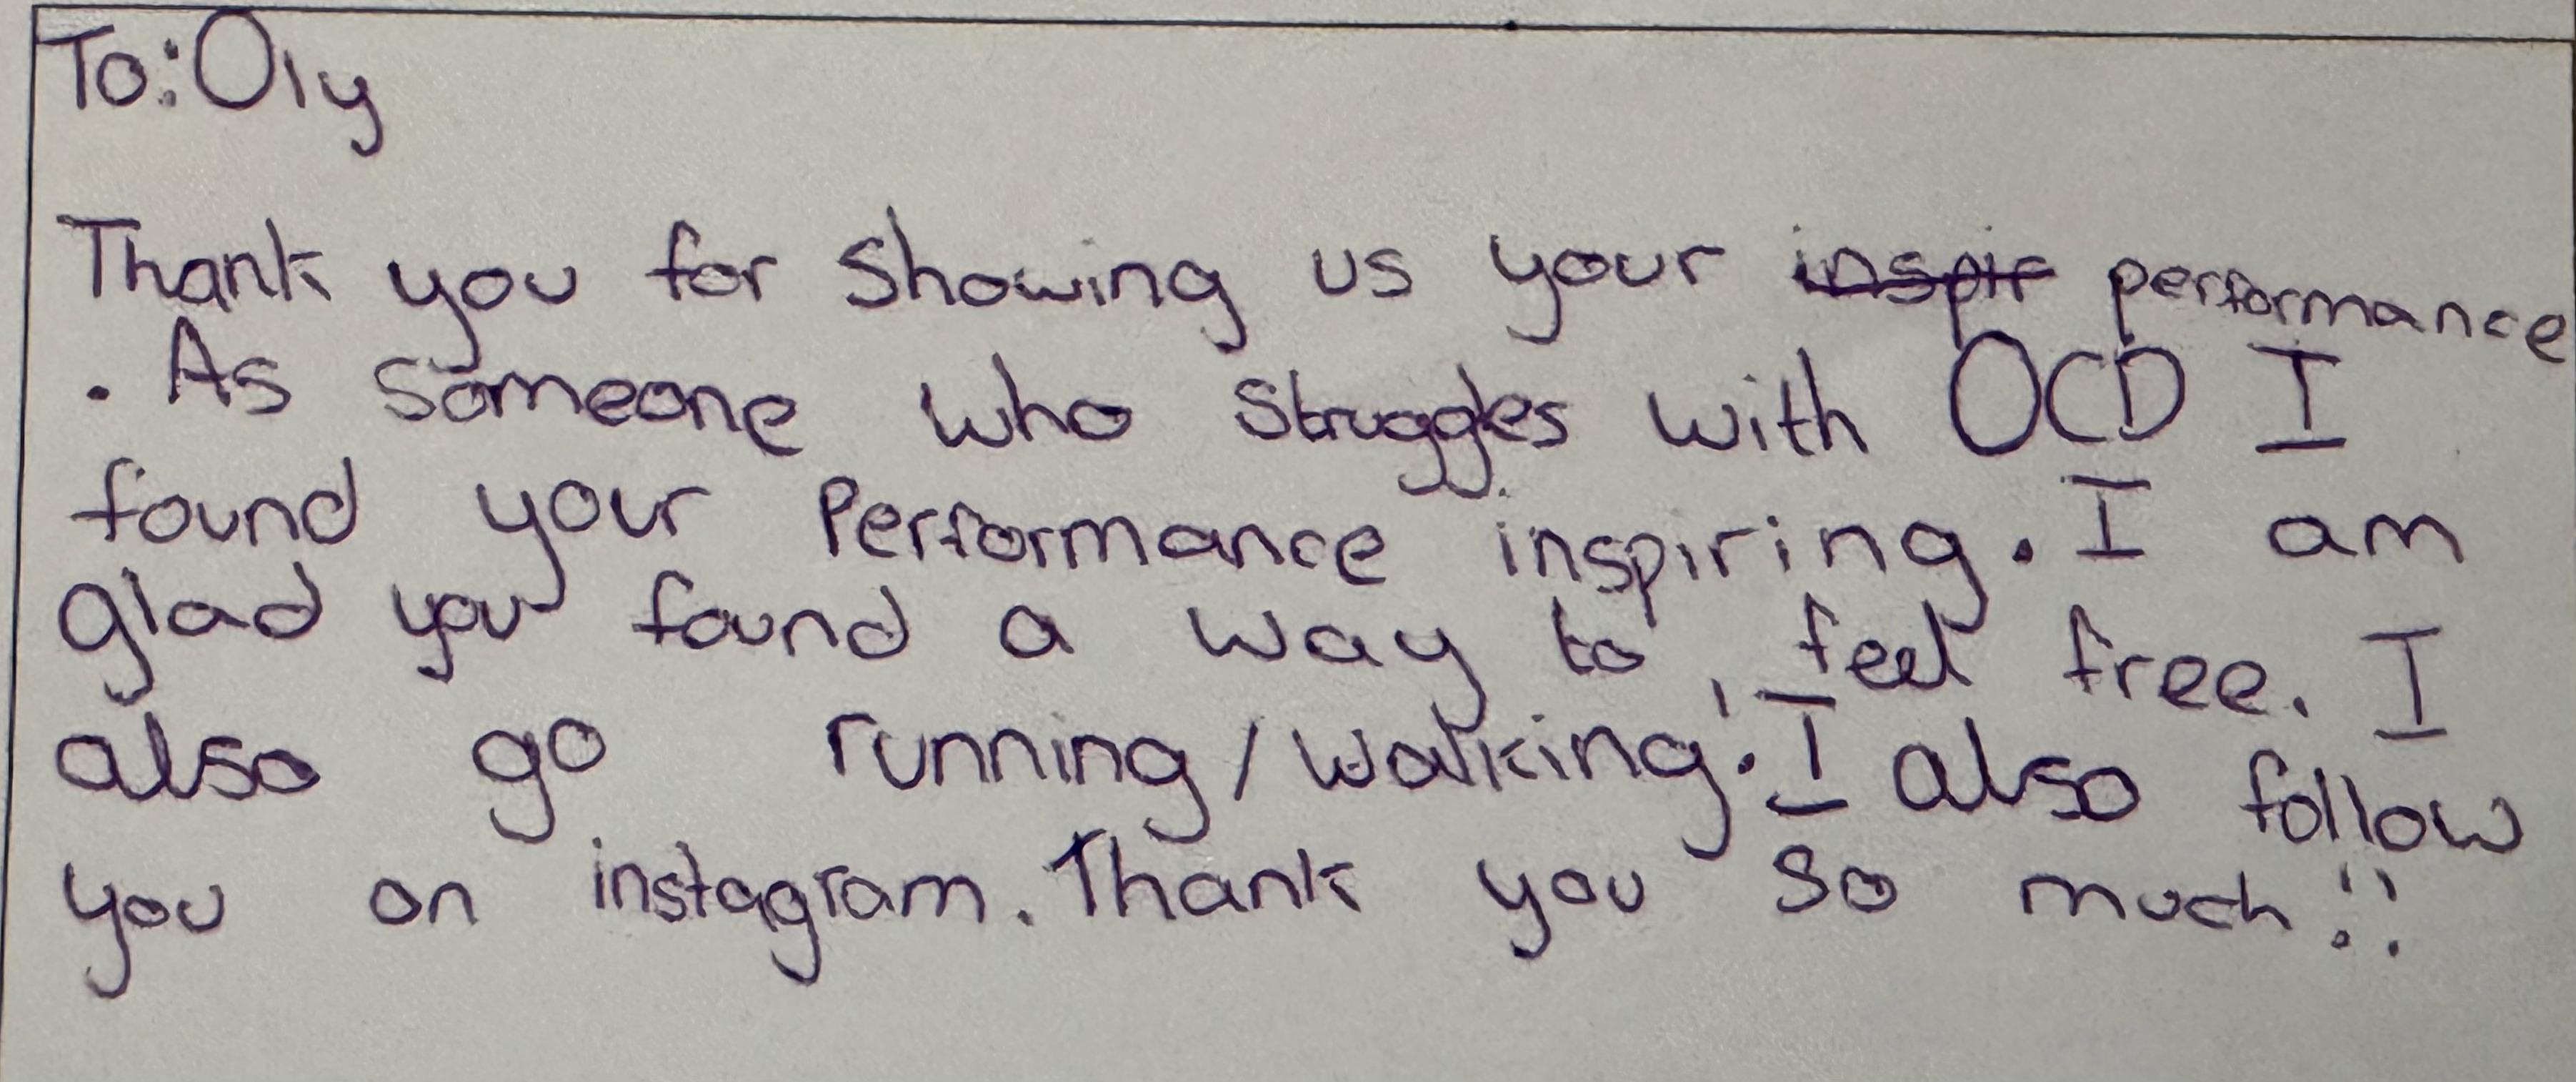 To: Oly
Thank you for showing us your inspir performance
. As someone who struggles with OCD I
found your Performance inspiring. I am
glad you found a way to feel free. I
also go running/walking. I also follow
you on instagram. Thank you so much!!